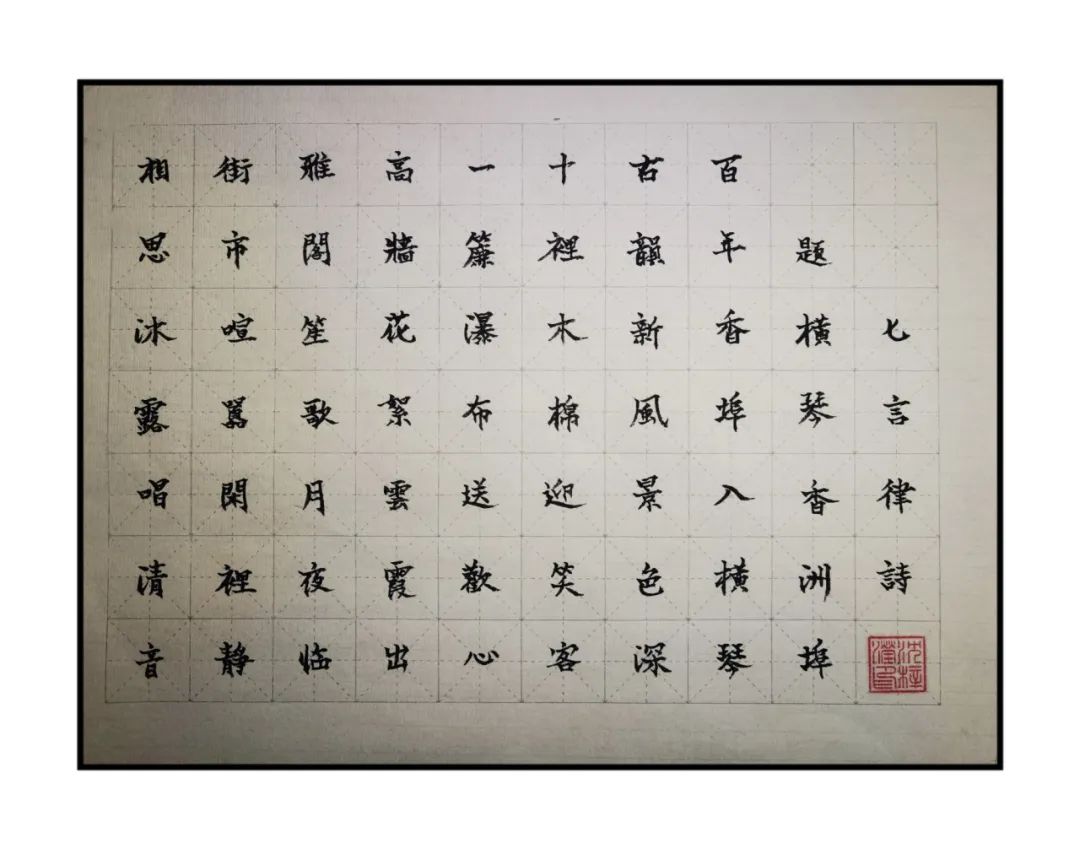 七言律詩
題橫琴香洲埠
百年香埠入橫琴
古韻新風景色深
十裡木棉迎笑客
一簾瀑布送歡心
高牆花絮雲霞出
雅閣笙歌月夜临
街市喧囂閑裡靜
相思沐露唱清音